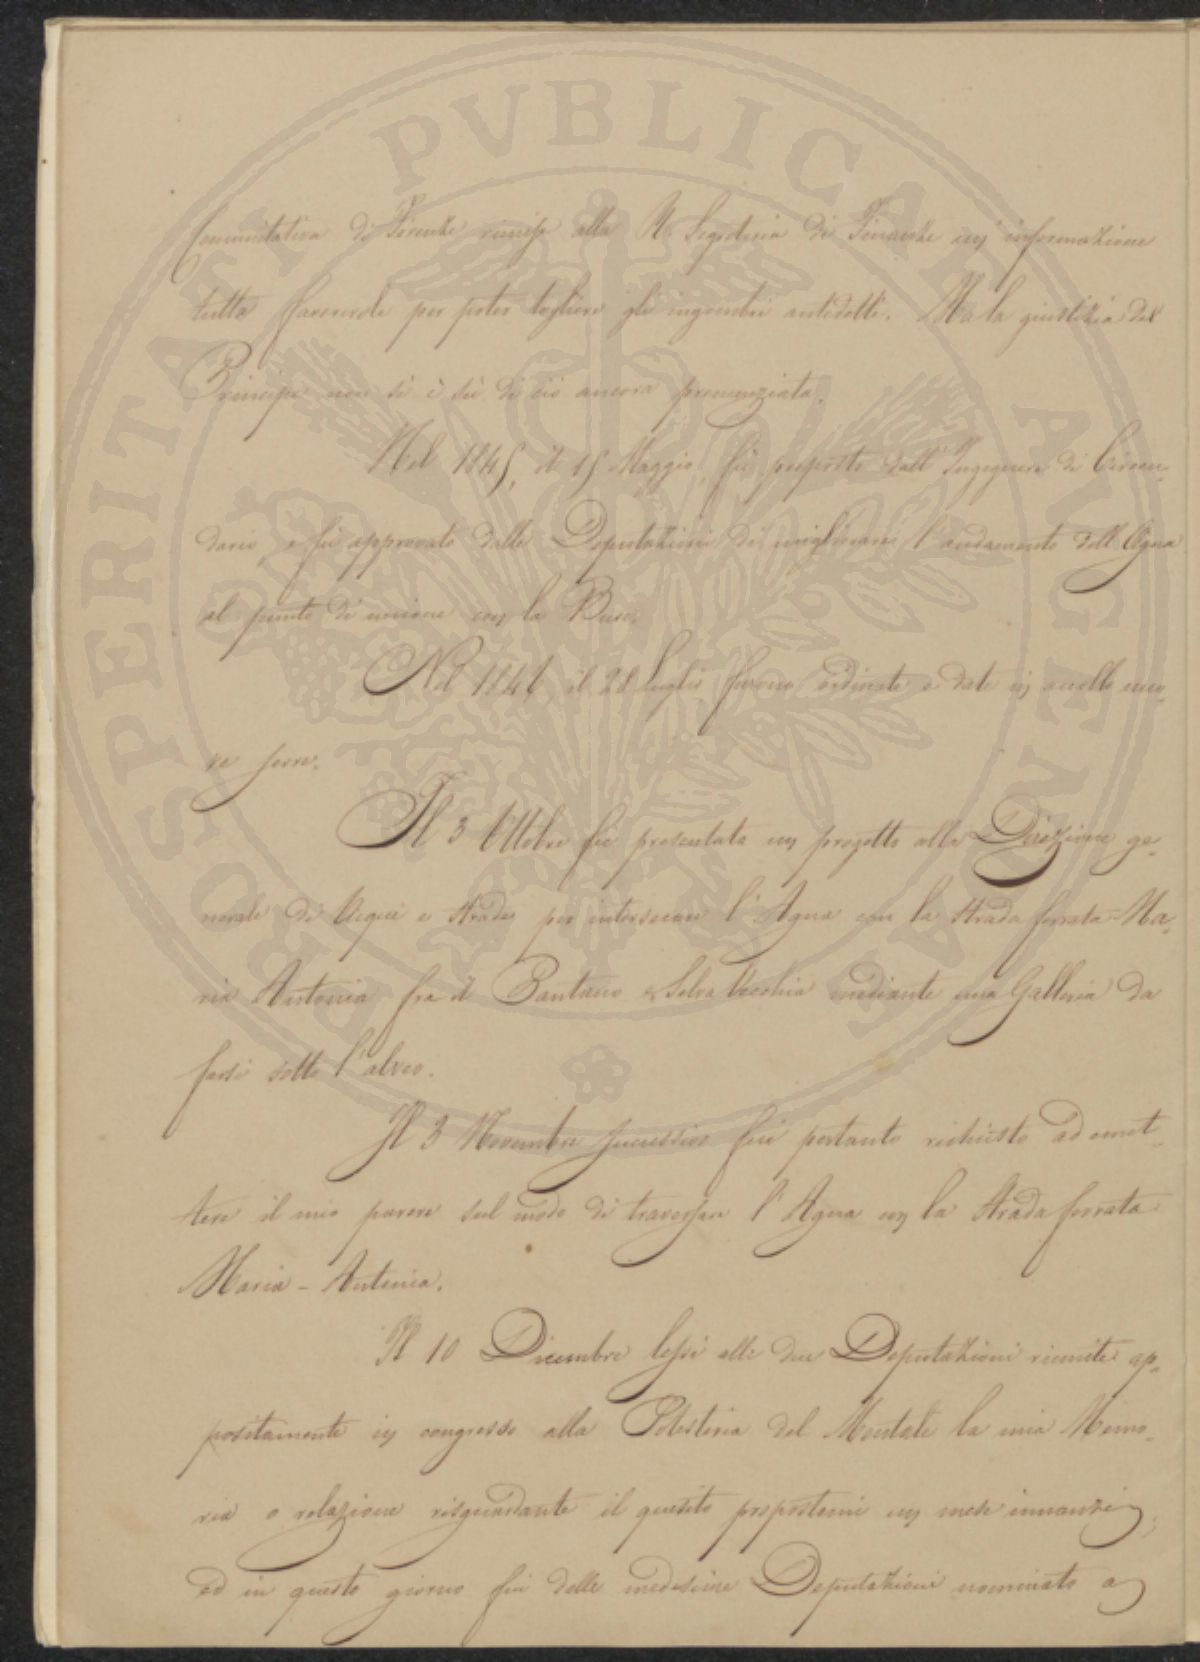 Communitativa di Firenze rimesse alla R. Segreteria di Finanze un' informazione
tutta favorevole per poter togliere gli ingombri antedetti. Ma la giustizia del
Principe non si è sù di ciò ancora pronunziata.
Nel 1845, il 15 Maggio, fù proposto dall' Ingegnere di Circon-
dario, e fù approvato dalle Deputazioni di migliorare l'andamento dell' Agna
al punto di unione con la Bure.
Nel 184 il 28 luglio furono ordinate e date in accollo nuo-
ve serre.
Il 3 Ottobre fù presentato un progetto alla Direzione ge-
nerale di Acque e Strade per intersecare l'Agna con la Strada ferrata Ma-
ria Antonia fra il Pantano e Selva Vecchia mediante una Galleria da
farsi sotto l'alveo.
Il 3 Novembre successivo fui pertanto richiesto ad emet-
tere il mio parere sul modo di traversare l'Agna con la Strada ferrata
Maria-Antonia.
Il 10 Dicembre lessi alle due Deputazioni riunite ap-
positamente in congresso alla Potesteria del Montale la mia Memo-
ria o relazione risguardante il quesito propostomi un mese innanzi;
ed in questo giorno fui dalle medesime Deputazioni nominato a
PROSPERITATI PVBLICAE AVGENDAE